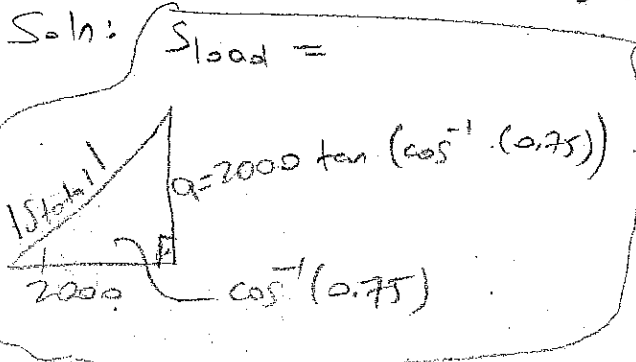 Soln: Sload =
|Stotal|
Q=2000 tan (cos⁻¹ (0.75))
2000
cos⁻¹(0.75)